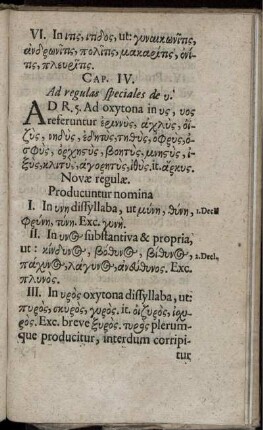 VI. In ιτις, ιτιδος, ut: γυναικωνῖτις,
ἀνδρωνῖτις, πολίτις, μακαρίτις, ὀνί-
τις, πλευρῖτις.
CAP. IV.
Ad regulas speciales de υ.
AD R. 5. Ad oxytona in υς, υος
referuntur ἐριννὺς, ἀχλὺς, ὀϊ-
ζὺς, νηδὺς, ἐδητὺς, πηθὺς, ὀφρὺς, ὀ-
σφὺς, ὀρχηστὺς, βοητὺς, μνηστὺς, ἰ-
ξὺς, κλιτὺς, ἀγορητὺς, ἰθὺς. it. ἄρκυς.
Novæ regulæ.
Producuntur nomina
I. In υνη dissyllaba, ut μύνη, θύνη, 1. Decl
φρύνη, τύνη. Exc. γυνή.
II. In υνος substantiva & propria,
ut: κίνδυνος, βόθυνος, βίθυνος, 2. Decl.
πάχυνος, λάγυνος, ἀνδύθυνος. Exc.
πλυνός.
III. In υρὸς oxytona dissyllaba, ut:
πυρὸς, σκυρὸς, γυρὸς. it. ὀϊζυρὸς, ἰσχυ-
ρὸς. Exc. breve ξυρὸς. τυρὸς plerum-
que producitur, interdum corripi-
tur